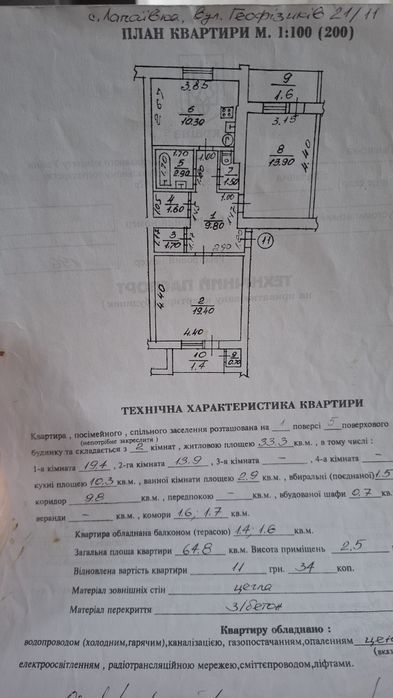 с. Лопаївка, вул. Геофізиків 21/11
ПЛАН КВАРТИРИ М. 1:100 (200)
3.85
6
10.30
9
1.6
3.15
8
13.90
4.40
1.70
5
2.90
1.00
7
1.50
4
1.60
1
9.80
3
1.70
2.90
11
4.40
2
19.40
4.40
10
1.4
0.70
ТЕХНІЧНА ХАРАКТЕРИСТИКА КВАРТИРИ
Квартира , посімейного , спільного заселення розташована на 1 поверсі 5 поверхового
(непотрібне закреслити)
будинку та складається з 2 кімнат , житловою площею 33.3 кв.м. , в тому числі :
1-а кімната 19.4 , 2-га кімната 13.9 , 3-я кімната – , 4-а кімната –
кухні площею 10.3 кв.м , ванної кімнати площею 2.9 кв.м., вбиральні (поєднаної) 1.5
коридор 9.8 кв.м. , передпокою – кв.м. , вбудованої шафи 0.7 кв.
веранди – кв.м. , комори 1.6; 1.7 кв.м.
Квартира обладнана балконом (терасою) 1.4; 1.6 кв.м.
Загальна площа квартири 64.8 кв.м. Висота приміщень 2.5
Відновлена вартість квартири 11 грн. 34 коп.
Матеріал зовнішніх стін цегла
Матеріал перекриття з/бетон
Квартиру обладнано :
водопроводом (холодним,гарячим),каналізацією, газопостачанням,опаленням
(вказ
електроосвітленням , радіотрансляційною мережею,сміттєпроводом,ліфтами.